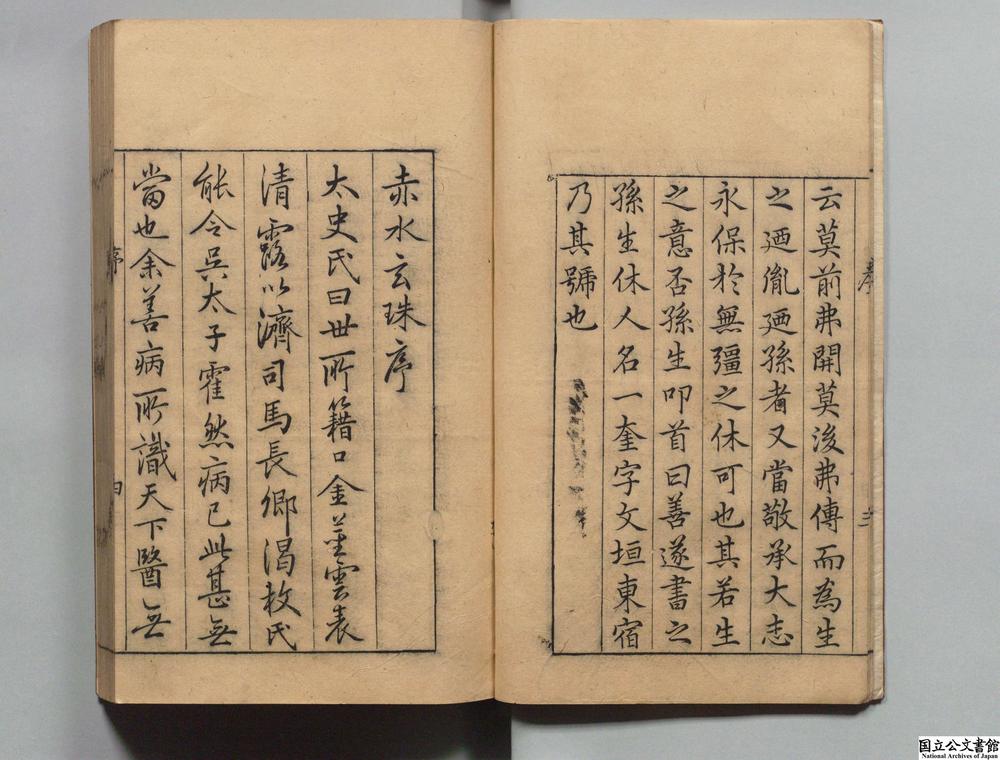 云莫前弗開莫後弗傳而為生
之廼胤廼孫者又當敬承大志
永保於無彊之休可也其若生
之意否孫生叩首曰善遂書之
孫生休人名一奎字文垣東宿
乃其號也
赤水玄珠序
太史氏曰世所籍口金莖雲表
清露以濟司馬長卿渴枚氏
能令吳太子霍然病已此甚無
當也余善病所識天下醫無
序
国立公文書館
National Archives of Japan